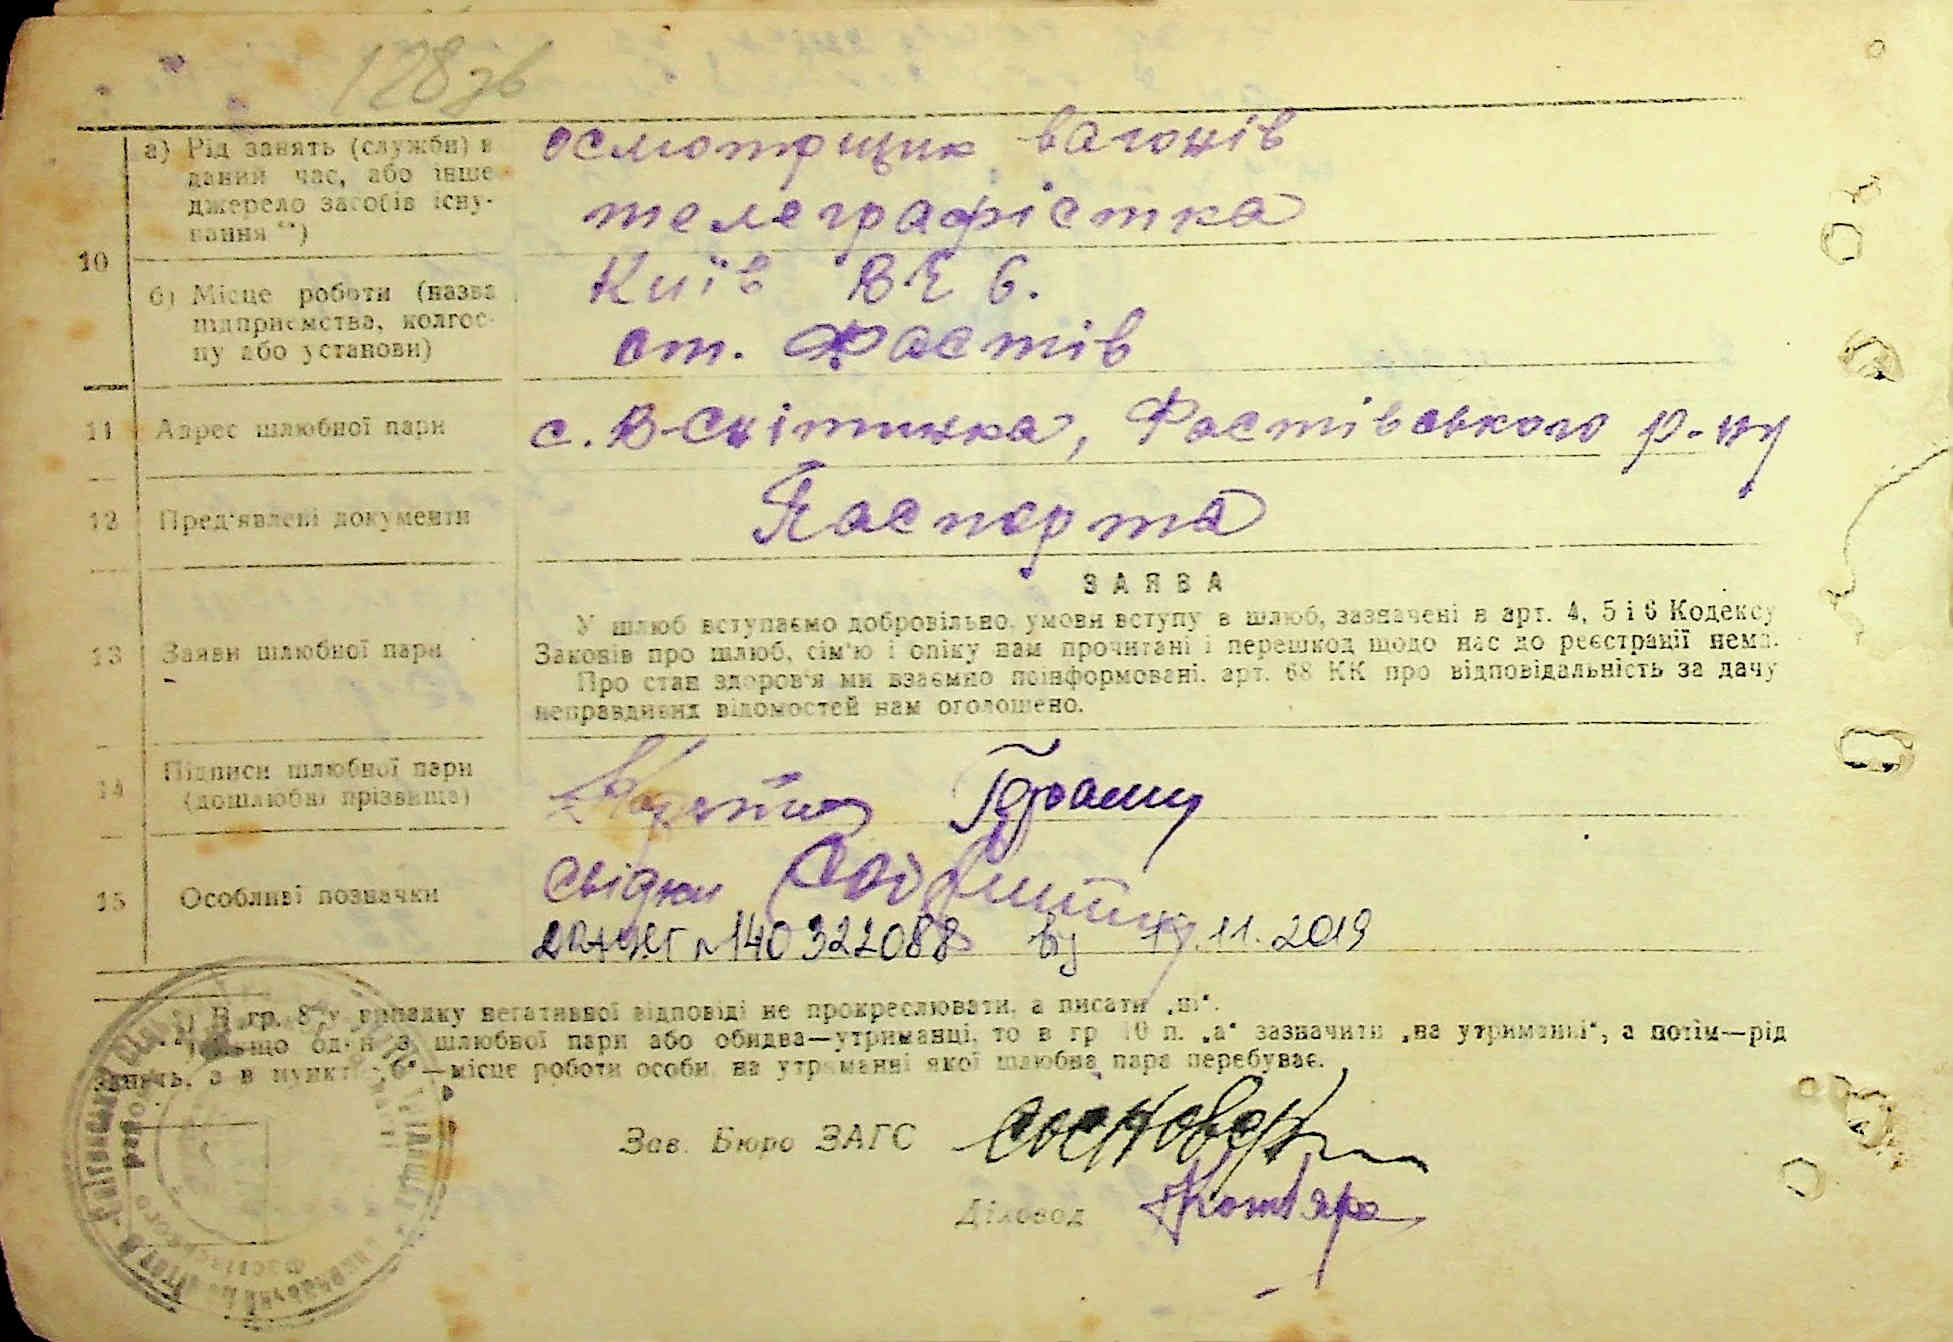 128 зв
а) Рід занять (служби) в
даний час, або інше
джерело засобів існу-
вання **)
осмотрщик вагонів
телеграфістка
10
б) Місце роботи (назва
підприємства, колгос-
пу або установи)
Київ ВЧ 6.
ст. Фастів
11 Адрес шлюбної пари
с. В-Снітинка, Фастівського р-ну
12 Пред'явлені документи
Паспорта
ЗАЯВА
13 Заяви шлюбної пари
У шлюб вступаємо добровільно, умови вступу в шлюб, зазначені в арт. 4, 5 і 6 Кодексу
Законів про шлюб, сім'ю і опіку нам прочитані і перешкод щодо нас до реєстрації нема.
Про стан здоров'я ми взаємно поінформовані, арт. 68 КК про відповідальність за дачу
неправдивих відомостей нам оголошено.
14 Підписи шлюбної пари
(дошлюбні прізвища)
15 Особливі позначки
свідки
140322088 від 11.2019
*) В гр. 8 у випадку негативної відповіді не прокреслювати, а писати „ні“.
Якщо один з шлюбної пари або обидва—утриманці, то в гр 10 п. „а“ зазначити „на утриманні“, а потім—рід
занять, а в пункті „б“—місце роботи особи, на утриманні якої шлюбна пара перебуває.
Зав. Бюро ЗАГС
Діловод